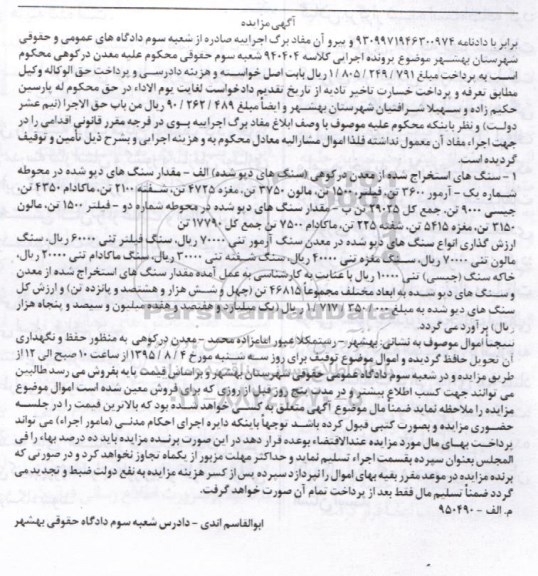 آگهی مزایده
برابر با دادنامه ۹۳۰۹۹۷۱۹۴۶۳۰۰۹۷۴ و پیرو آن مفاد برگ اجراییه صادره از شعبه سوم دادگاه های عمومی و حقوقی
شهرستان بهشهر موضوع پرونده اجرایی کلاسه ۹۴۰۴۰۴ شعبه سوم حقوقی محکوم علیه معدن درکوهی محکوم
است به پرداخت مبلغ ۷۹۱ / ۲۴۹ / ۸۰۵ / ۱ ریال بابت اصل خواسته و هزینه دادرسی و پرداخت حق الوکاله وکیل
مطابق تعرفه و پرداخت خسارت تاخیر تادیه از تاریخ تقدیم دادخواست لغایت یوم الاداء در حق محکوم له پارسین
حکیم زاده و سهیلا شرافتیان شهرستان بهشهر و ایضاً مبلغ ۴۸۹ / ۲۶۲ / ۹۰ ریال من باب حق الاجرا (نیم عشر
دولت) و نظر باینکه محکوم علیه موصوف با وصف ابلاغ مفاد برگ اجراییه بوی در فرجه مقرر قانونی اقدامی را در
جهت اجراء مفاد آن معمول نداشته فلذا اموال مشارالیه معادل محکوم به و هزینه اجرایی و بشرح ذیل تأمین و توقیف
گردیده است.
۱ – سنگ های استخراج شده از معدن درکوهی (سنگ های دپو شده) الف – مقدار سنگ های دپو شده در محوطه
شماره یک – آرمور ۳۶۰۰ تن، فیلتر ۱۵۰۰ تن، مالون ۳۷۵۰ تن، مغزه ۴۷۲۵ تن، شفته ۲۱۰۰ تن، ماکادام ۴۳۵۰ تن،
جیسی ۹۰۰۰ تن. جمع کل ۲۹۰۲۵ تن ب – مقدار سنگ های دپو شده در محوطه شماره دو – فیلتر ۱۵۰۰ تن، مالون
۳۱۵۰ تن، مغزه ۵۴۱۵ تن، شفته ۲۲۵ تن، ماکادام ۷۵۰۰ تن جمع کل ۱۷۷۹۰ تن
ارزش گذاری انواع سنگ های دپو شده در معدن سنگ آرمور تنی ۷۰۰۰۰ ریال، سنگ فیلتر تنی ۶۰۰۰۰ ریال، سنگ
مالون تنی ۷۰۰۰۰ ریال، سنگ مغزه تنی ۴۰۰۰۰ ریال، سنگ شفته تنی ۳۰۰۰۰ ریال، سنگ ماکادام تنی ۲۰۰۰۰ ریال،
خاکه سنگ (جیسی) تنی ۱۰۰۰۰ ریال با عنایت به کارشناسی به عمل آمده مقدار سنگ های استخراج شده از معدن
و سنگ های دپو شده به ابعاد مختلف مجموعاً ۴۶۸۱۵ تن (چهل و شش هزار و هشتصد و پانزده تن) و ارزش کل
سنگ های دپو شده به مبلغ ریال (یک میلیارد و هفتصد و هفده میلیون و سیصد و پنجاه هزار
ریال) برآورد می گردد.
نتیجتاً اموال موصوف به نشانی: بهشهر – رستمکلا عبور امامزاده محمد – معدن درکوهی به منظور حفظ و نگهداری
آن تحویل حافظ گردیده و اموال موضوع توقیف برای روز سه شنبه مورخ ۴ / ۸ / ۱۳۹۵ از ساعت ۱۰ صبح الی ۱۲ از
طریق مزایده و در شعبه سوم دادگاه عمومی حقوقی شهرستان بهشهر و براساس قیمت پایه بفروش می رسد طالبین
می توانند جهت کسب اطلاع بیشتر و در مدت پنج روز قبل از روزی که برای فروش معین شده است اموال موضوع
مزایده را ملاحظه نماید ضمناً مال موضوع آگهی متعلق به کسی خواهد شد بود که بالاترین قیمت را در جلسه
حضوری مزایده و بصورت کتبی قبول کرده باشد. توجهاً باینکه دایره اجرای احکام مدنی (مامور اجراء) می تواند
پرداخت بهای مال مورد مزایده عندالاقتضاء بوعده قرار دهد در این صورت برنده مزایده باید ده درصد بهاء را فی
المجلس بعنوان سپرده بقسمت اجراء تسلیم نماید و حداکثر مهلت مزبور از یکماه تجاوز نخواهد کرد و در صورتی که
برنده مزایده در موعد مقرر بقیه بهای اموال را نپردازد سپرده پس از کسر هزینه مزایده به نفع دولت ضبط و تجدید می
گردد ضمناً تسلیم مال فقط بعد از پرداخت تمام آن صورت خواهد گرفت.
م. الف – ۹۵۰۴۹۰
ابوالقاسم اندی – دادرس شعبه سوم دادگاه حقوقی بهشهر
ParsNamadData